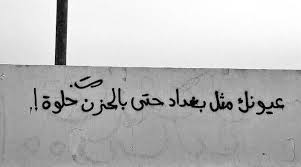 عيونك مثل بغداد حتى بالحزن حلوة !